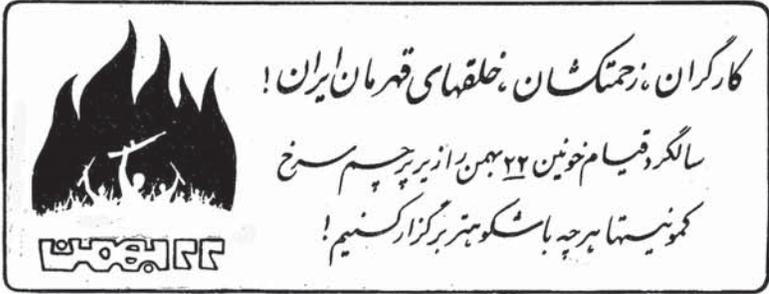 کارگران، زحمتکشان، خلقهای قهرمان ایران!
سالگرد قیام خونین ۲۲ بهمن را زیر پرچم سرخ
کمونیستها هرچه باشکوهتر برگزار کنیم!
۲۲ بهمن